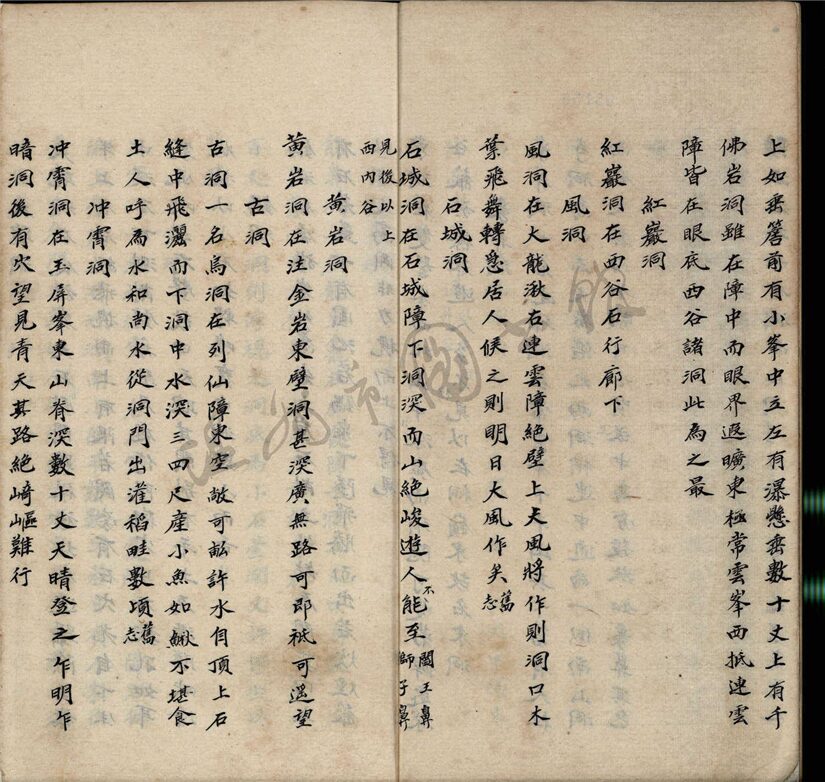 上如垂簷前有小峯中立左有瀑懸垂數十丈上有千
佛岩洞雖在障中而眼界遐曠東極常雲峯西抵連雲
障皆在眼底西谷諸洞此為之最
紅巖洞
紅巖洞在西谷石行廊下
風洞
風洞在大龍湫右連雲障絕壁上天風將作則洞口木
葉飛舞轉急居人候之則明日大風作矣舊志
石城洞
石城洞在石城障下洞深而山絕峻遊人不能至閻王鼻獅子鼻
見後以上西內谷
黃岩洞
黃岩洞在注金岩東壁洞甚深廣無路可即祗可遥望
古洞
古洞一名烏洞在列仙障東空敞可畝許水自頂上石
縫中飛灑而下洞中水深三四尺產小魚如鰍不堪食
土人呼為水和尚水從洞門出灌稻畦數頃舊志
冲霄洞
冲霄洞在玉屏峯東山脊深數十丈天晴登之乍明乍
暗洞後有穴望見青天其路絕崎嶇難行